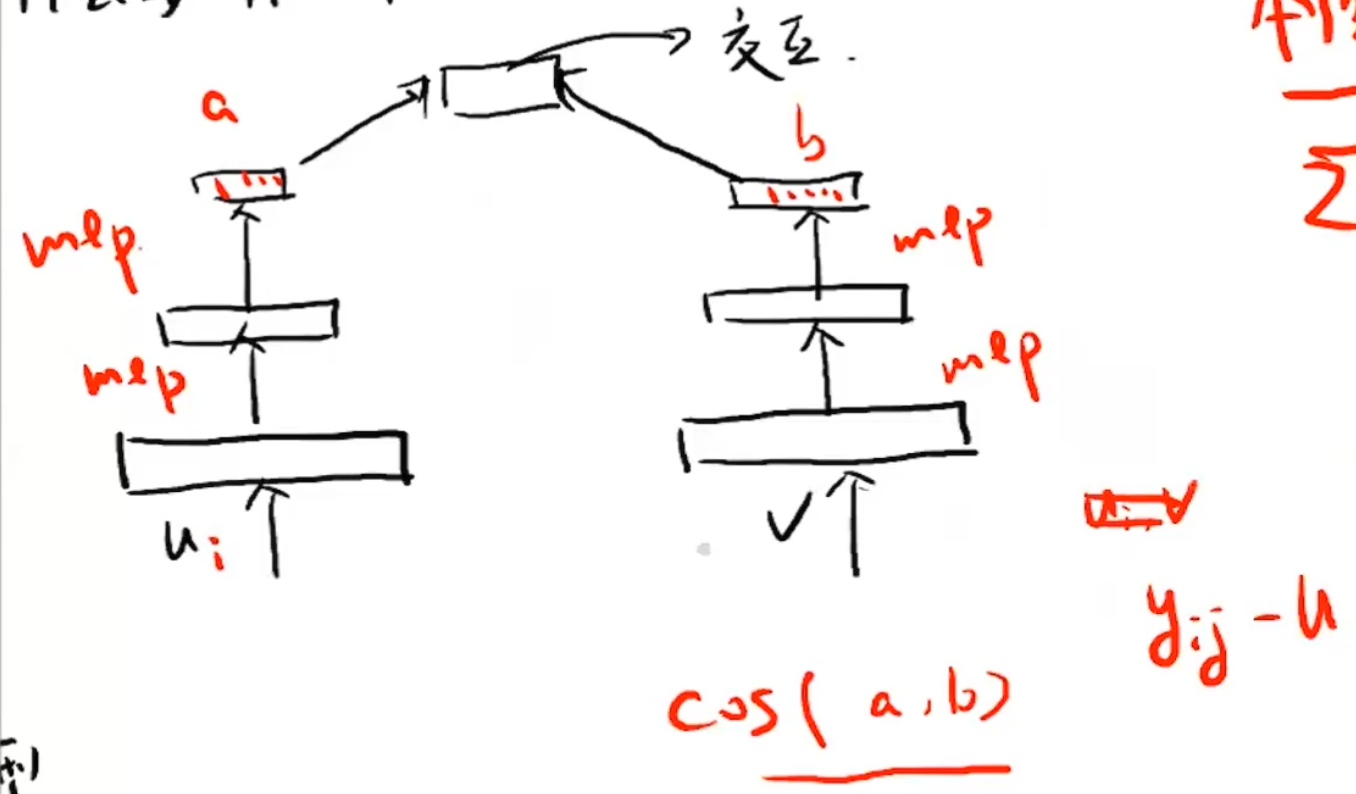 交互.
a
b
mlp.
mlp
mlp
mlp
Σ
u i
V
y ij - u
cos( a, b)